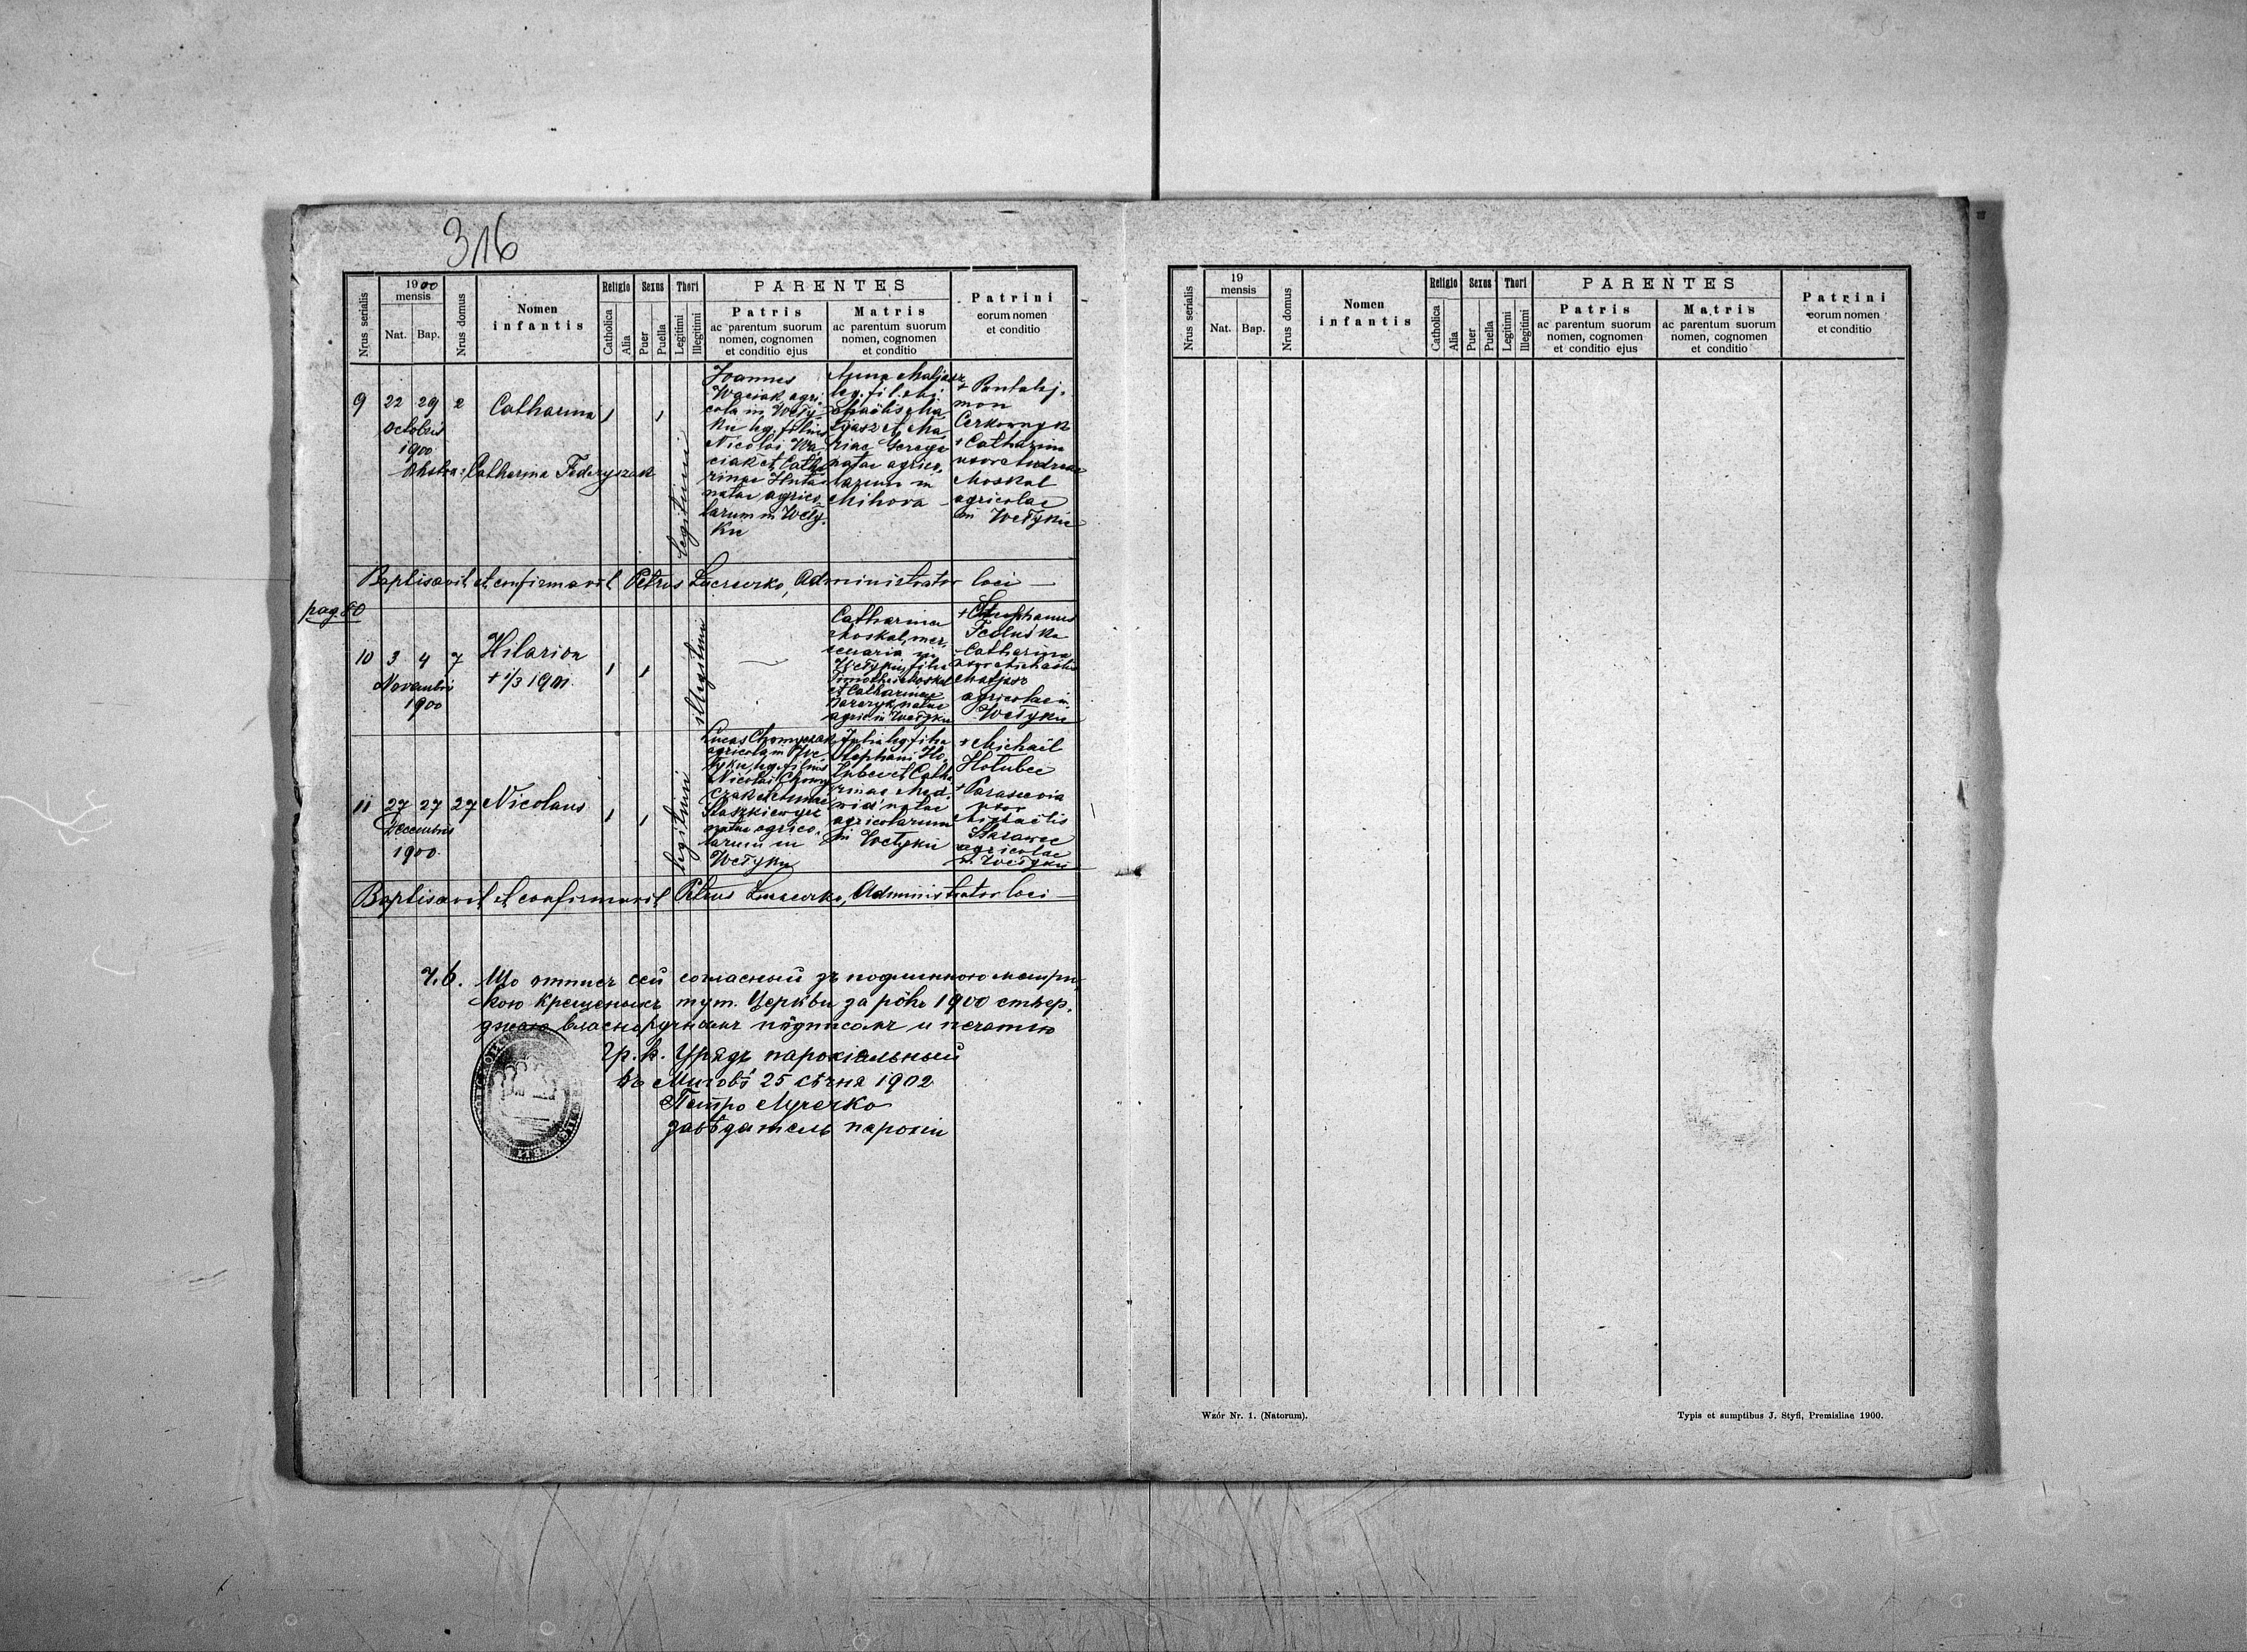 316
Nrus serialis
1900
mensis
Nat.
Bap.
Nrus domus
Nomen
infantis
Religio
Catholica
Alia
Sexus
Puer
Puella
Thori
Legitimi
Illegitimi
PARENTES
Patris
ac parentum suorum
nomen, cognomen
et conditio ejus
Matris
ac parentum suorum
nomen, cognomen
et conditio
Patrini
eorum nomen
et conditio
9
22
29
2
Octobris
1900
Catharina
Obstetr: Catharina Fedczyszak
legitimi
Joannes
Waciak agri-
cola in Wety-
ku leg. filius
Nicolai Wa-
ciak et Catha
rinae Huta
natae agrico-
larum in Wety-
ku
Anna Maljasz
leg. fil. Mi-
chaëlis Ma
ljasz et Ma
riae Gerega
natae agrico-
larum in
Mihova
+ Pantalej-
mon
Cerkownyk
+ Catharina
uxor Andreae
Moskal
agricolae
in Wetyku
Baptisavit et confirmavit Petrus Luczeczko, Administrator loci
pag. 80
10
3
4
7
Novembris
1900
Hilarion
+ 1/3 1901.
illegitimi
Catharina
Moskal, mer-
cenaria in
Wetyku, filia
Timothei Moskal
et Catharinae
natae
agric. in Wetyku
+ Stephanus
Fedus ka
Catharina
uxor Michaëlis
Maljasz
agricolae in
Wetyku
11
27
27
27
Decembris
1900.
Nicolaus
legitimi
Lucas Chomyczak
agricola in We
tyku, leg. filius
Nicolai Chomy
czak et Annae
Staszkiewycz
natae agrico-
larum in
Wetyku
Julia leg. filia
Stephani Ho-
lubec et Catha
rinae Med-
wid natae
agricolarum
in Wetyku
+ Michaël
Hołubec
+ Parascevia
uxor
Michaëlis
agricolae
in Wetyku
Baptisavit et confirmavit Petrus Luczeczko, Administrator loci
Ч. 6. Що отпись сей согласный зъ подлинною метри-
кою крещеныхъ тут. Церкви за рôкъ 1900 ствер-
джаю власноручнымъ пôдписомъ и печатію
Гр. к. Урядъ парохіяльный
въ Миговѣ 25 сѣчня 1902
Петро Лучечко
завѣдатель парохіи
Nrus serialis
19
mensis
Nat.
Bap.
Nrus domus
Nomen
infantis
Religio
Catholica
Alia
Sexus
Puer
Puella
Thori
Legitimi
Illegitimi
PARENTES
Patris
ac parentum suorum
nomen, cognomen
et conditio ejus
Matris
ac parentum suorum
nomen, cognomen
et conditio
Patrini
eorum nomen
et conditio
Wzór Nr. 1. (Natorum).
Typis et sumptibus J. Styfi, Premisliae 1900.